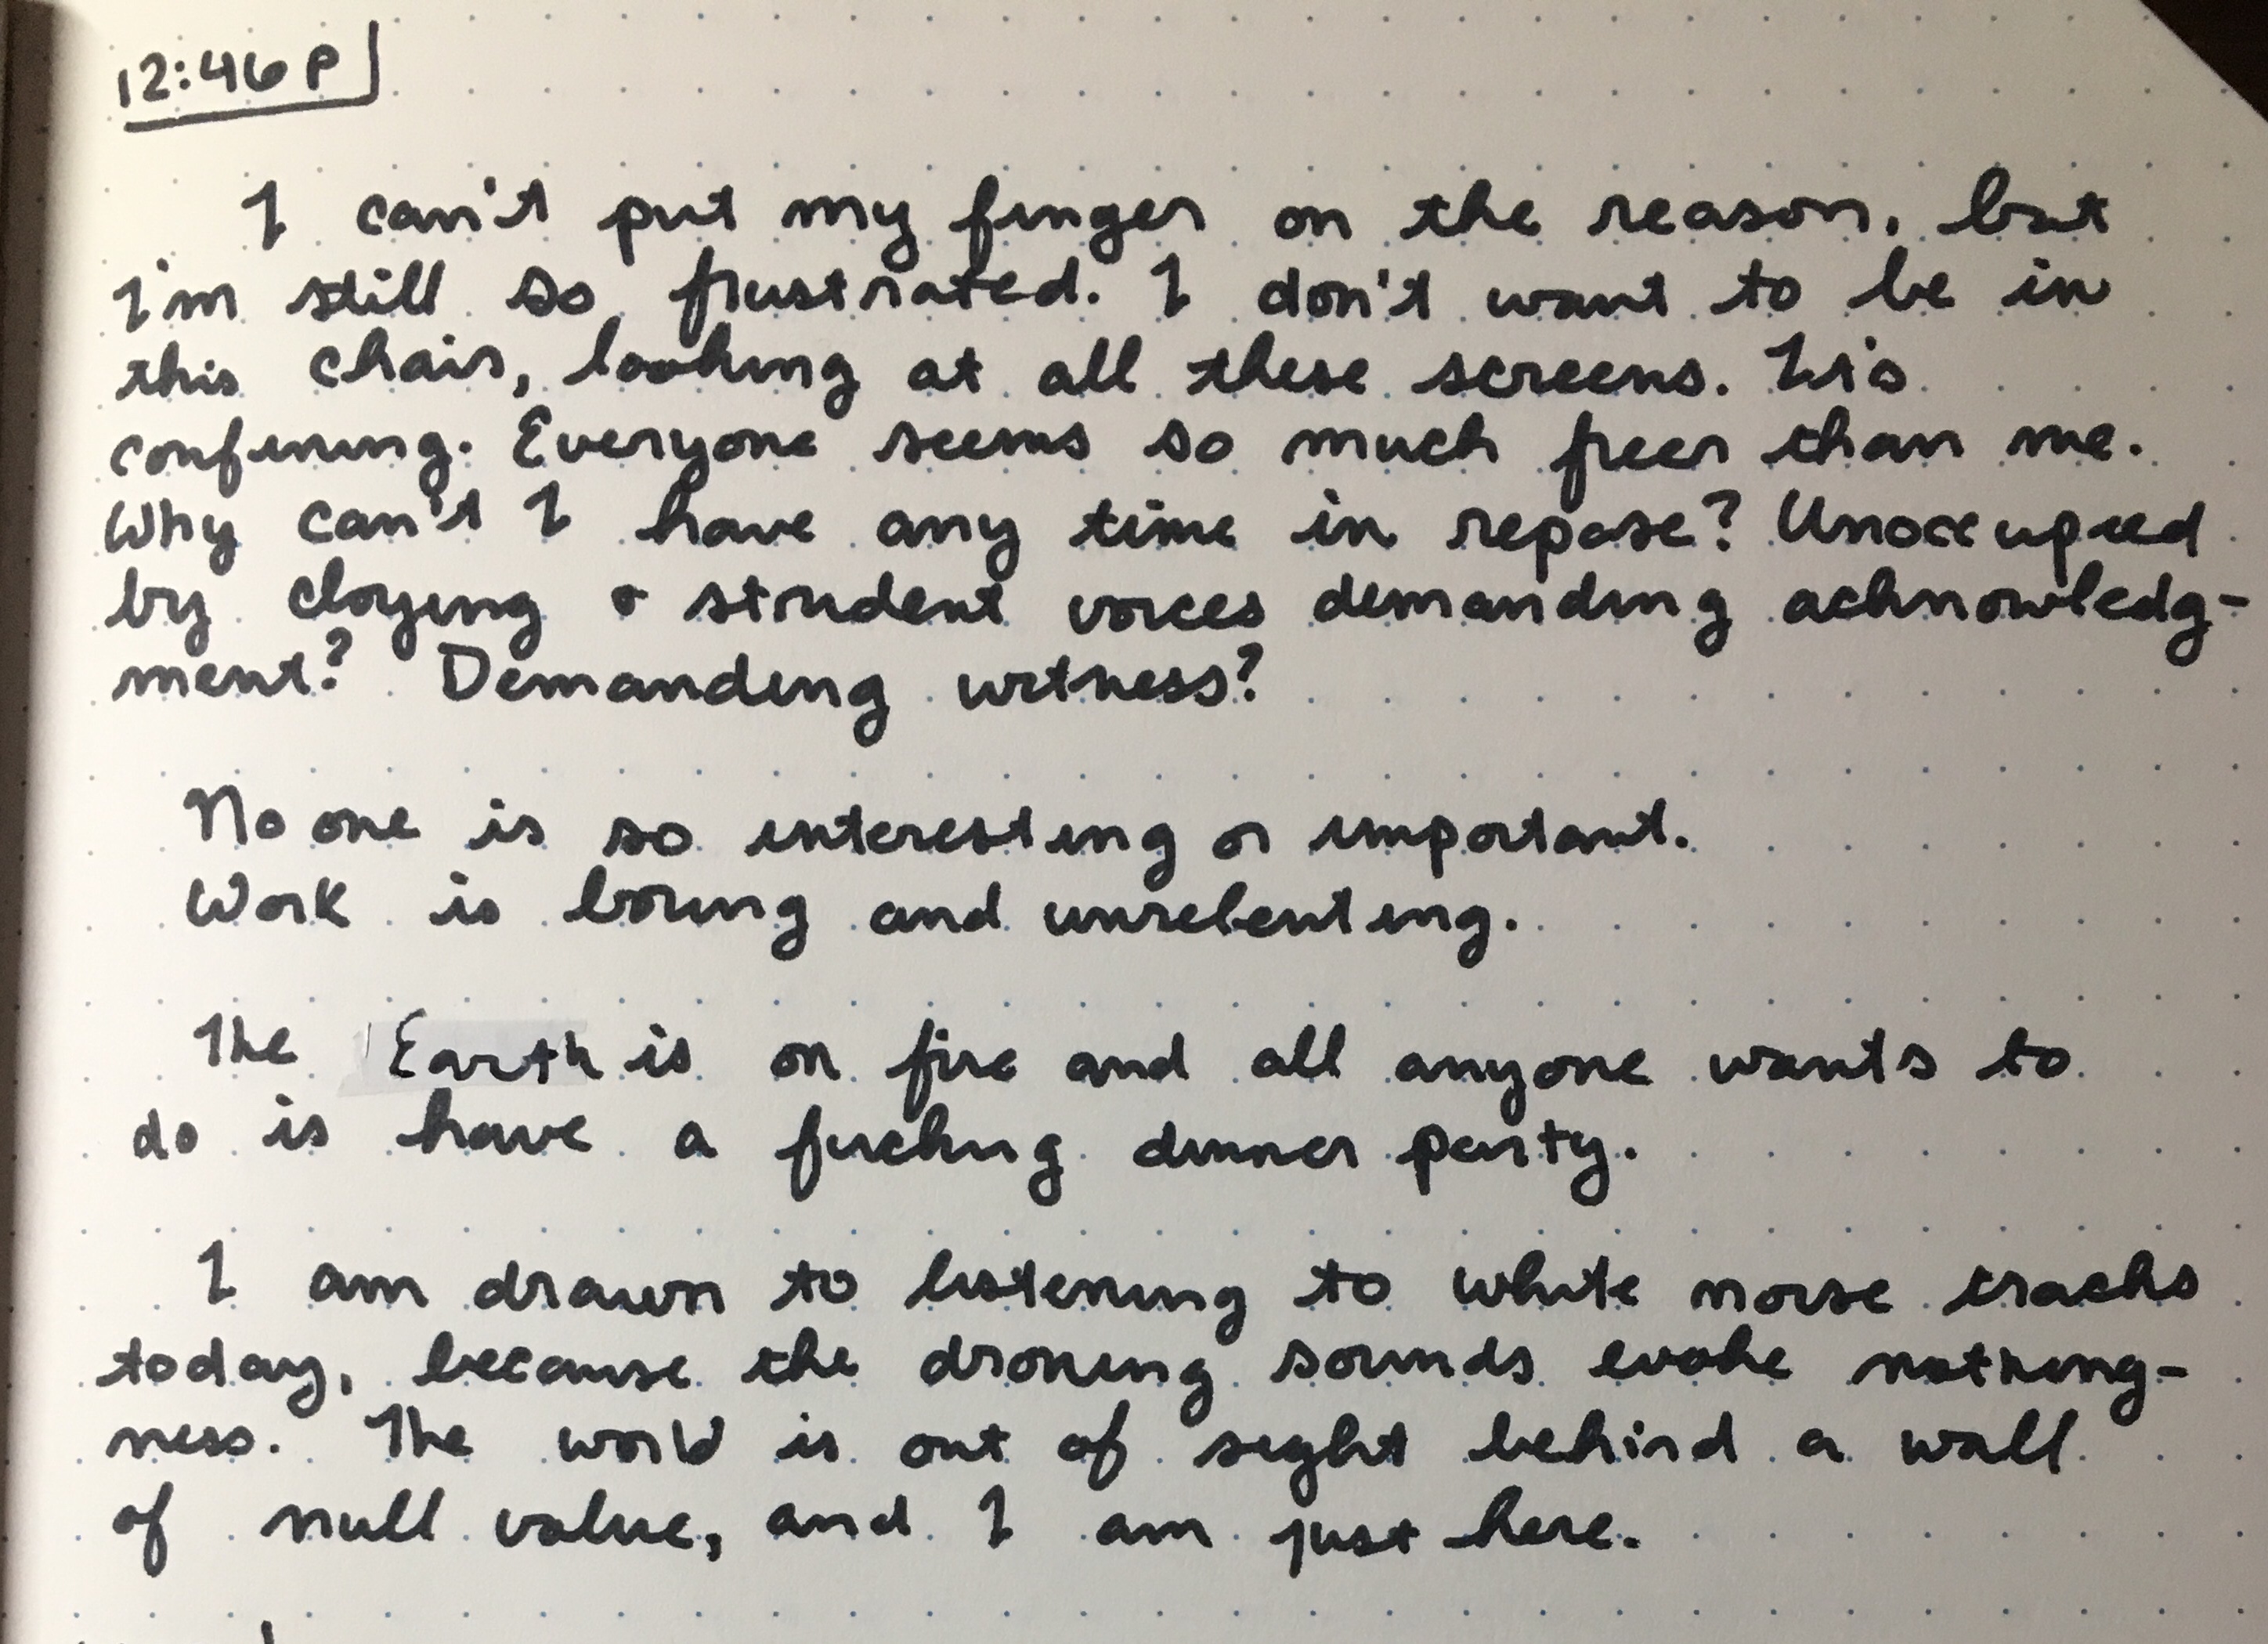 12:46 P
I can't put my finger on the reason, but
I'm still so frustrated. I don't want to be in
this chair, looking at all these screens. It's
confining. Everyone seems so much freer than me.
Why can't I have any time in repose? Unoccupied
by cloying & strident voices demanding acknowledg-
ment? Demanding witness?
No one is so interesting or important.
Work is boring and unrelenting.
The Earth is on fire and all anyone wants to
do is have a fucking dinner party.
I am drawn to listening to white noise tracks
today, because the droning sounds evoke nothing-
ness. The world is out of sight behind a wall
of null value, and I am just here.